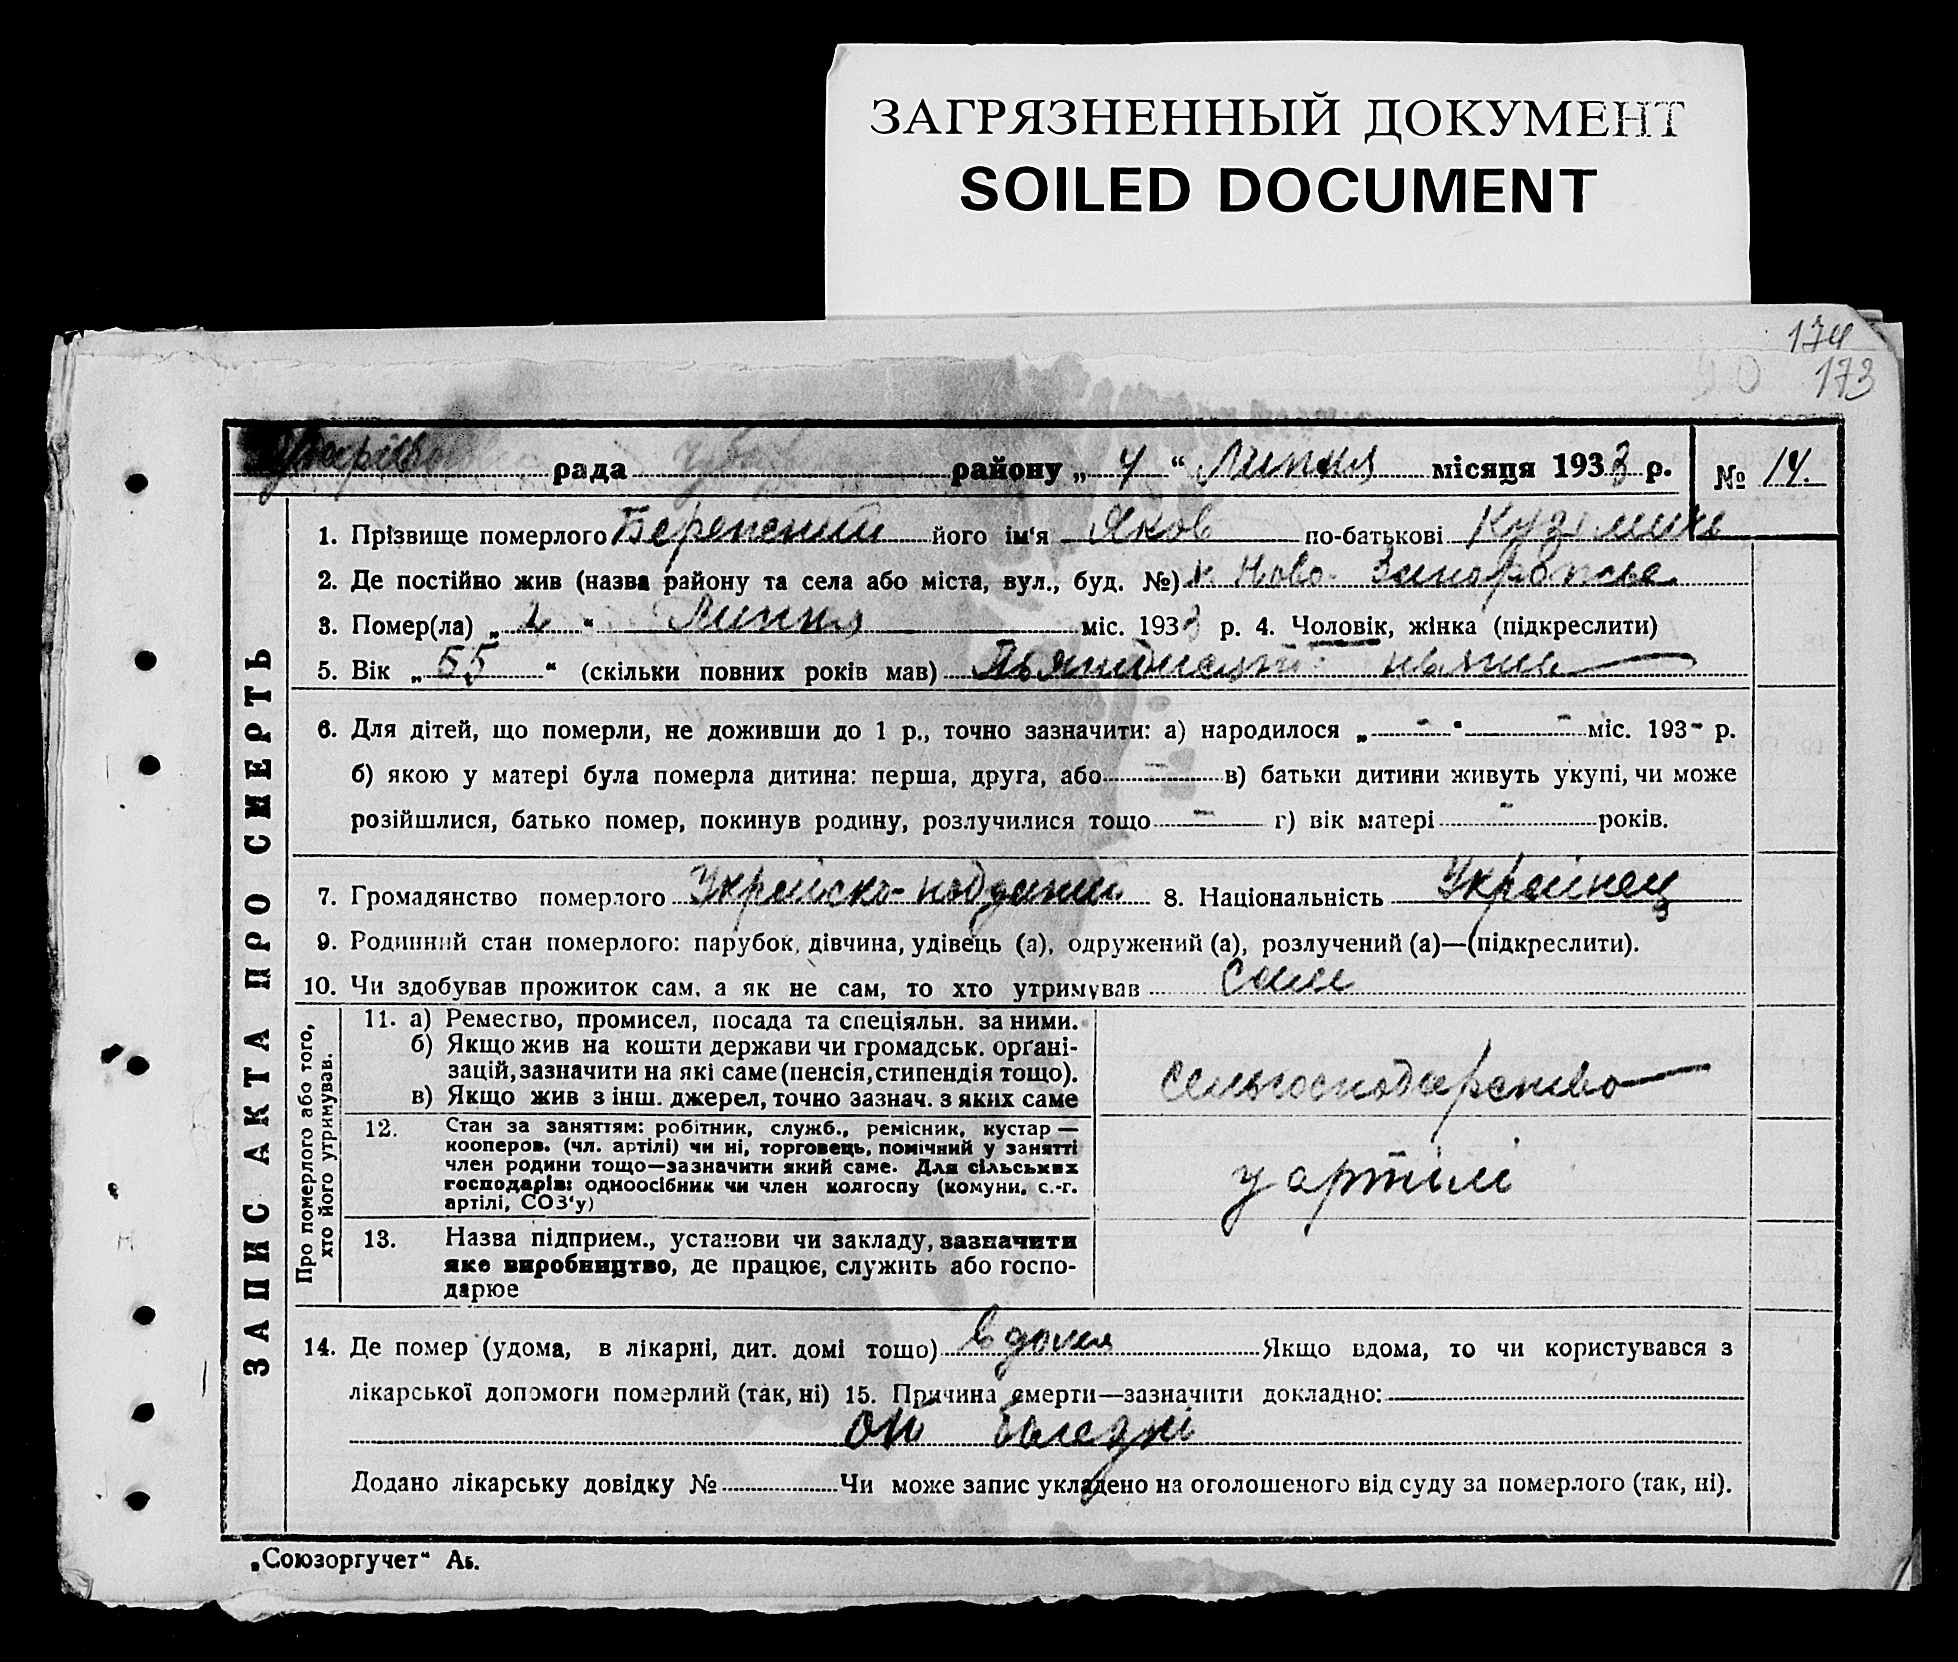 ЗАГРЯЗНЕННЫЙ ДОКУМЕНТ
SOILED DOCUMENT
174
90 173
рада району „ 4 “ Липня місяця 1933 р. № 14.
ЗАПИС АКТА ПРО СМЕРТЬ
1. Прізвище померлого його ім'я Яков по-батькові
2. Де постійно жив (назва району та села або міста, вул., буд. №) х. Ново-Запорожье
3. Помер(ла) „ 2 “ Липня міс. 1933 р. 4. Чоловік, жінка (підкреслити)
5. Вік „ 55 “ (скільки повних років мав)
6. Для дітей, що померли, не доживши до 1 р., точно зазначити: а) народилося „ - “ - міс. 193- р.
б) якою у матері була померла дитина: перша, друга, або - в) батьки дитини живуть укупі, чи може
розійшлися, батько помер, покинув родину, розлучилися тощо - г) вік матері - років.
7. Громадянство померлого 8. Національність Украінец
9. Родинний стан померлого: парубок, дівчина, удівець (а), одружений (а), розлучений (а)—(підкреслити).
10. Чи здобував прожиток сам, а як не сам, то хто утримував Сам
Про померлого або того,
хто його утримував.
11. а) Ремество, промисел, посада та спеціяльн. за ними.
б) Якщо жив на кошти держави чи громадськ. орґані-
зацій, зазначити на які саме (пенсія, стипендія тощо).
в) Якщо жив з інш. джерел, точно зазнач. з яких саме
сельгосподарство
12. Стан за заняттям: робітник, служб., ремісник, кустар —
кооперов. (чл. артілі) чи ні, торговець, помічний у занятті
член родини тощо—зазначити який саме. Для сільських
господарів: одноосібник чи член колгоспу (комуни, с.-г.
артілі, СОЗ'у)
у артілі
13. Назва підприєм., установи чи закладу, зазначити
яке виробництво, де працює, служить або госпо-
дарює
14. Де помер (удома, в лікарні, дит. домі тощо) вдома Якщо вдома, то чи користувався з
лікарської допомоги померлий (так, ні) 15. Причина смерти—зазначити докладно:
от
Додано лікарську довідку № Чи може запис укладено на оголошеного від суду за померлого (так, ні).
„Союзоргучет“ А5.